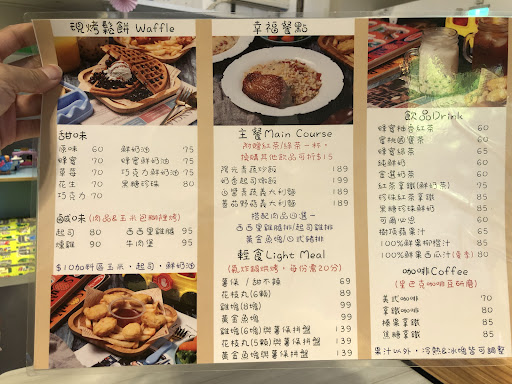 現烤鬆餅 Waffle
甜口味
原味 60 鮮奶油 75
蜂蜜 70 蜂蜜鮮奶油 75
草莓 70 巧克力鮮奶油 75
花生 70 黑糖珍珠 80
巧克力 70
鹹口味(肉品&玉米包糊裡烤)
起司 80 西西里雞腿 95
燻雞 90 牛肉堡 95
$10加料區玉米、起司、鮮奶油
幸福餐點
主餐Main Course
附贈紅茶/綠茶一杯,
換購其他飲品可折$15
189
奶香起司燉飯 189
義大利麵 189
蕃茄野菇義大利麵 189
搭配肉品四選一
西西里雞腿排/起司雞排
黃金魚塊/日式豬排
輕食Light Meal
(氣炸鍋烘烤,每份需20分)
薯條 / 甜不辣 69
花枝丸(6顆) 89
雞塊(8塊) 99
黃金魚塊 99
雞塊(6塊)與薯條拼盤 139
花枝丸(5顆)與薯條拼盤 139
黃金魚塊與薯條拼盤 139
飲品Drink
蜂蜜柚香紅茶 60
蜜桃國寶茶 60
蜂蜜綠茶 65
純鮮奶 60
60
紅茶拿鐵(鮮奶茶) 75
珍珠紅茶拿鐵 85
黑糖珍珠鮮奶 85
可爾必思 60
樹頂蘋果汁 65
100%鮮果柳橙汁 85
100%鮮果西瓜汁(夏季) 80
咖啡Coffee
(星巴克咖啡豆研磨)
美式咖啡 70
拿鐵咖啡 80
榛果拿鐵 85
焦糖拿鐵 85
果汁以外,冷熱&冰塊皆可調整